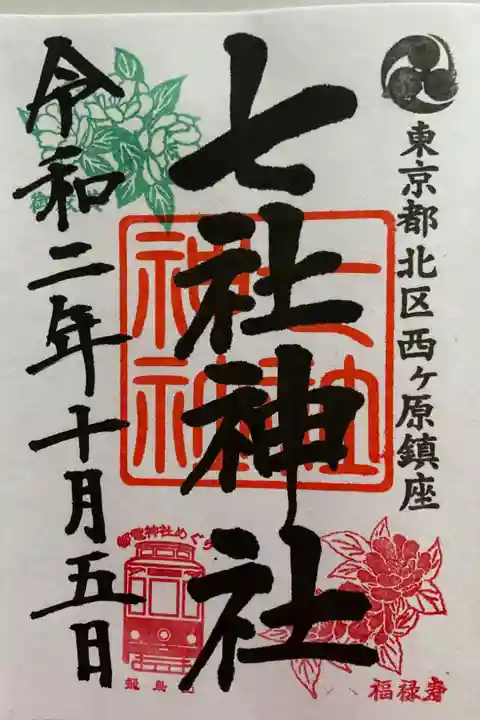 東京都北区西ヶ原鎮座
七社神社
七社
神社
令和二年十月五日
都電神社めぐり
福禄寿